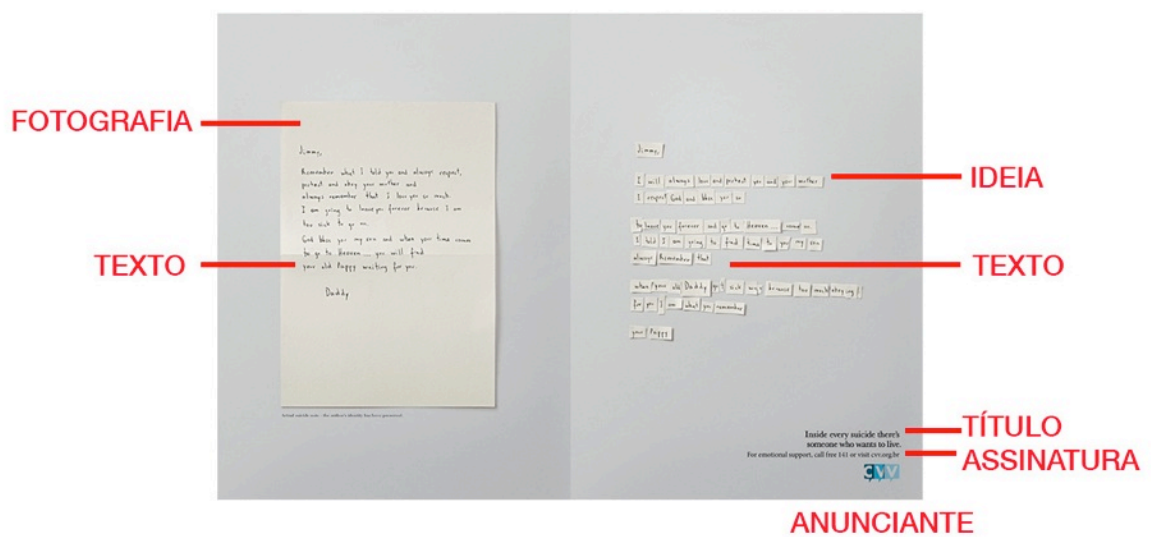 FOTOGRAFIA
TEXTO
Jimmy,
Remember what I told you and always respect,
protect and obey your mother and
always remember that I love you so much.
I am going to leave you forever because I am
too sick to go on.
God bless you my son and when your time comes
to go to Heaven .... you will find
your old Pappy waiting for you.
Daddy
Actual suicide note - the author's identity has been preserved.
Jimmy,
I will always love and protect you and your mother.
I respect God and bless you so
to leave you forever and go to Heaven .... comes on.
I told I am going to find time to you my son
always Remember that
when your old Daddy
sick
because too much obey
for you I am what you remember
your Pappy
IDEIA
TEXTO
Inside every suicide there's
someone who wants to live.
For emotional support, call free 141 or visit cvv.org.br
CVV
TÍTULO
ASSINATURA
ANUNCIANTE